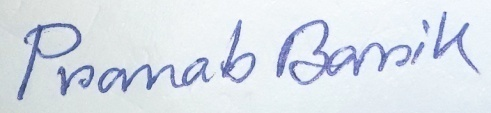 Pranab Barik